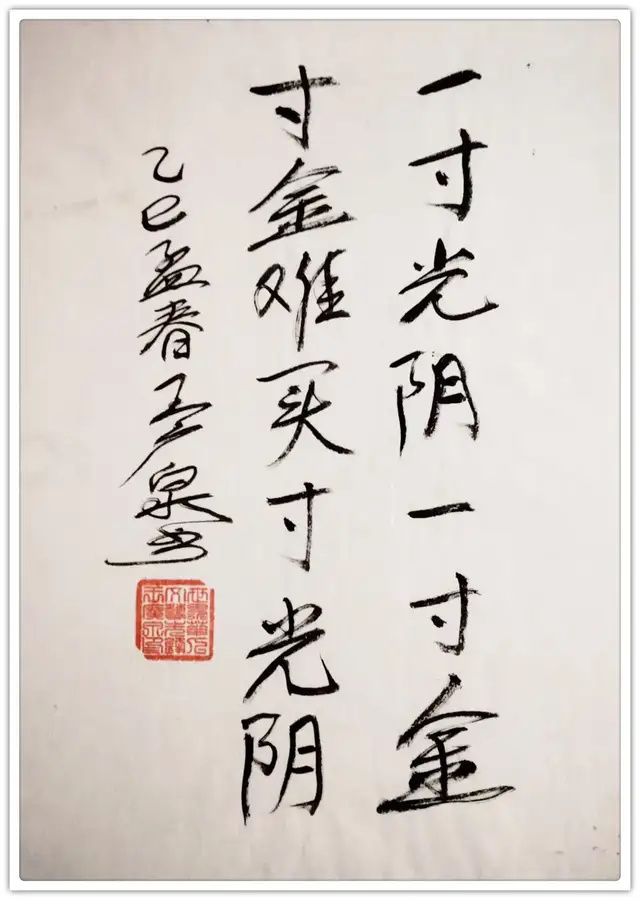 一寸光阴一寸金
寸金难买寸光阴
乙巳孟春王广泉书